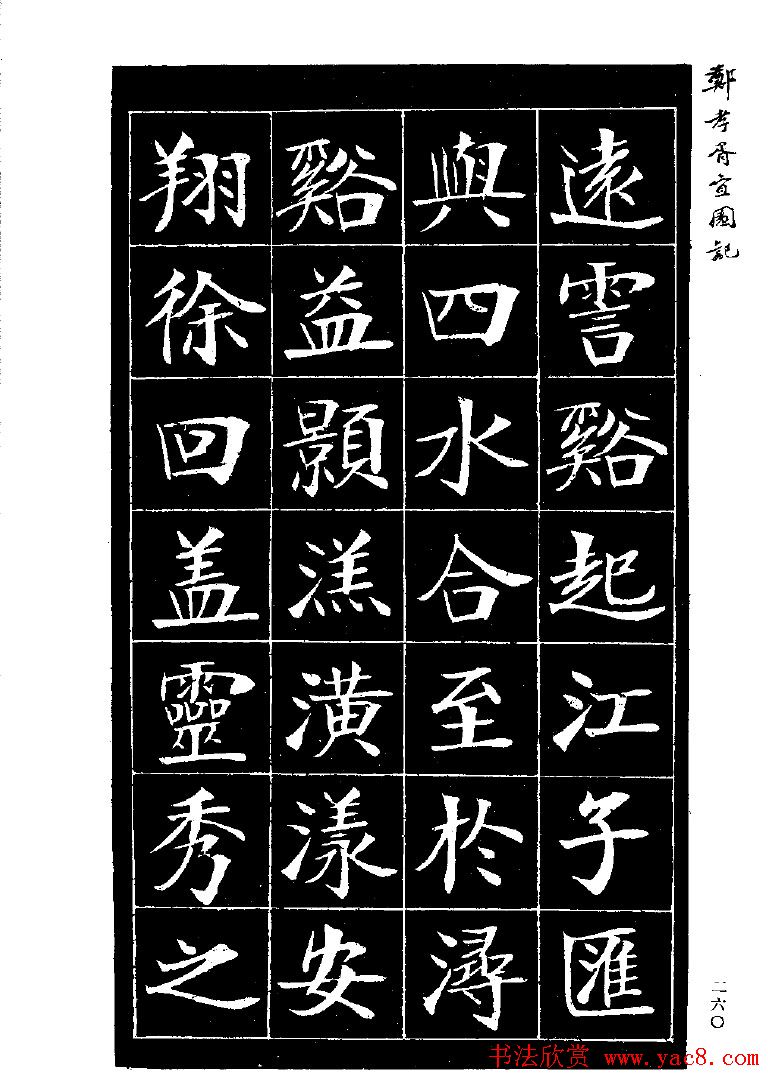 鄭孝胥宜園記
遠霅谿起江子匯
與四水合至於潯
谿益顥溔潢漾安
翔徐回盖靈秀之
二六〇
书法欣赏 www.yac8.com